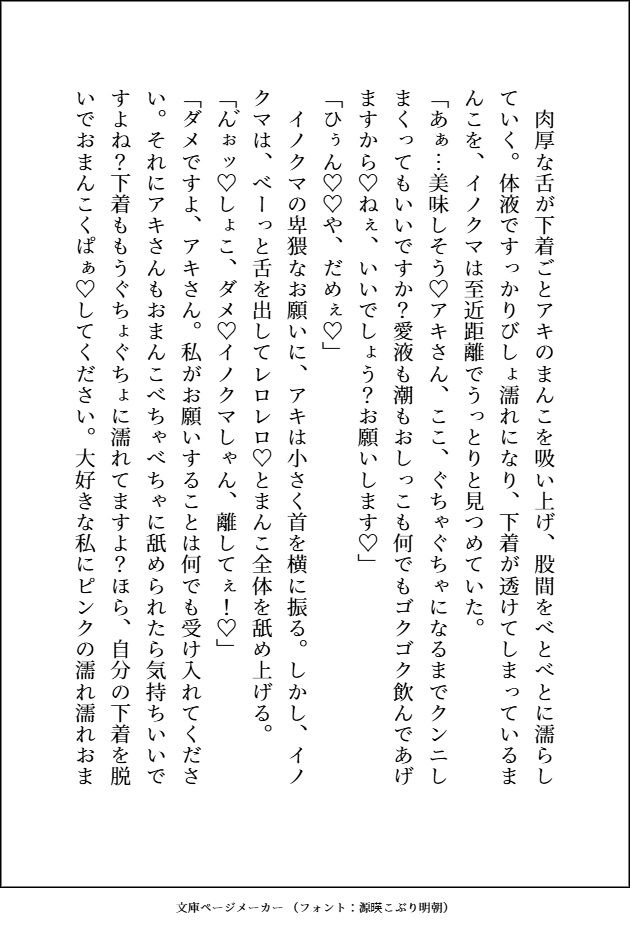 肉厚な舌が下着ごとアキのまんこを吸い上げ、股間をべとべとに濡らし
ていく。体液ですっかりびしょ濡れになり、下着が透けてしまっているま
んこを、イノクマは至近距離でうっとりと見つめていた。
「あぁ…美味しそう♡アキさん、ここ、ぐちゃぐちゃになるまでクンニし
まくってもいいですか？愛液も潮もおしっこも何でもゴクゴク飲んであげ
ますから♡ねぇ、いいでしょう？お願いします♡」
「ひぅん♡♡や、だめぇ♡」
イノクマの卑猥なお願いに、アキは小さく首を横に振る。しかし、イノ
クマは、べーっと舌を出してレロレロ♡とまんこ全体を舐め上げる。
「ん゛ぉッ♡しょこ、ダメ♡イノクマしゃん、離してぇ！♡」
「ダメですよ、アキさん。私がお願いすることは何でも受け入れてくださ
い。それにアキさんもおまんこべちゃべちゃに舐められたら気持ちいいで
すよね？下着ももうぐちょぐちょに濡れてますよ？ほら、自分の下着を脱
いでおまんこくぱぁ♡してください。大好きな私にピンクの濡れ濡れおま
文庫ページメーカー（フォント：源暎こぶり明朝）